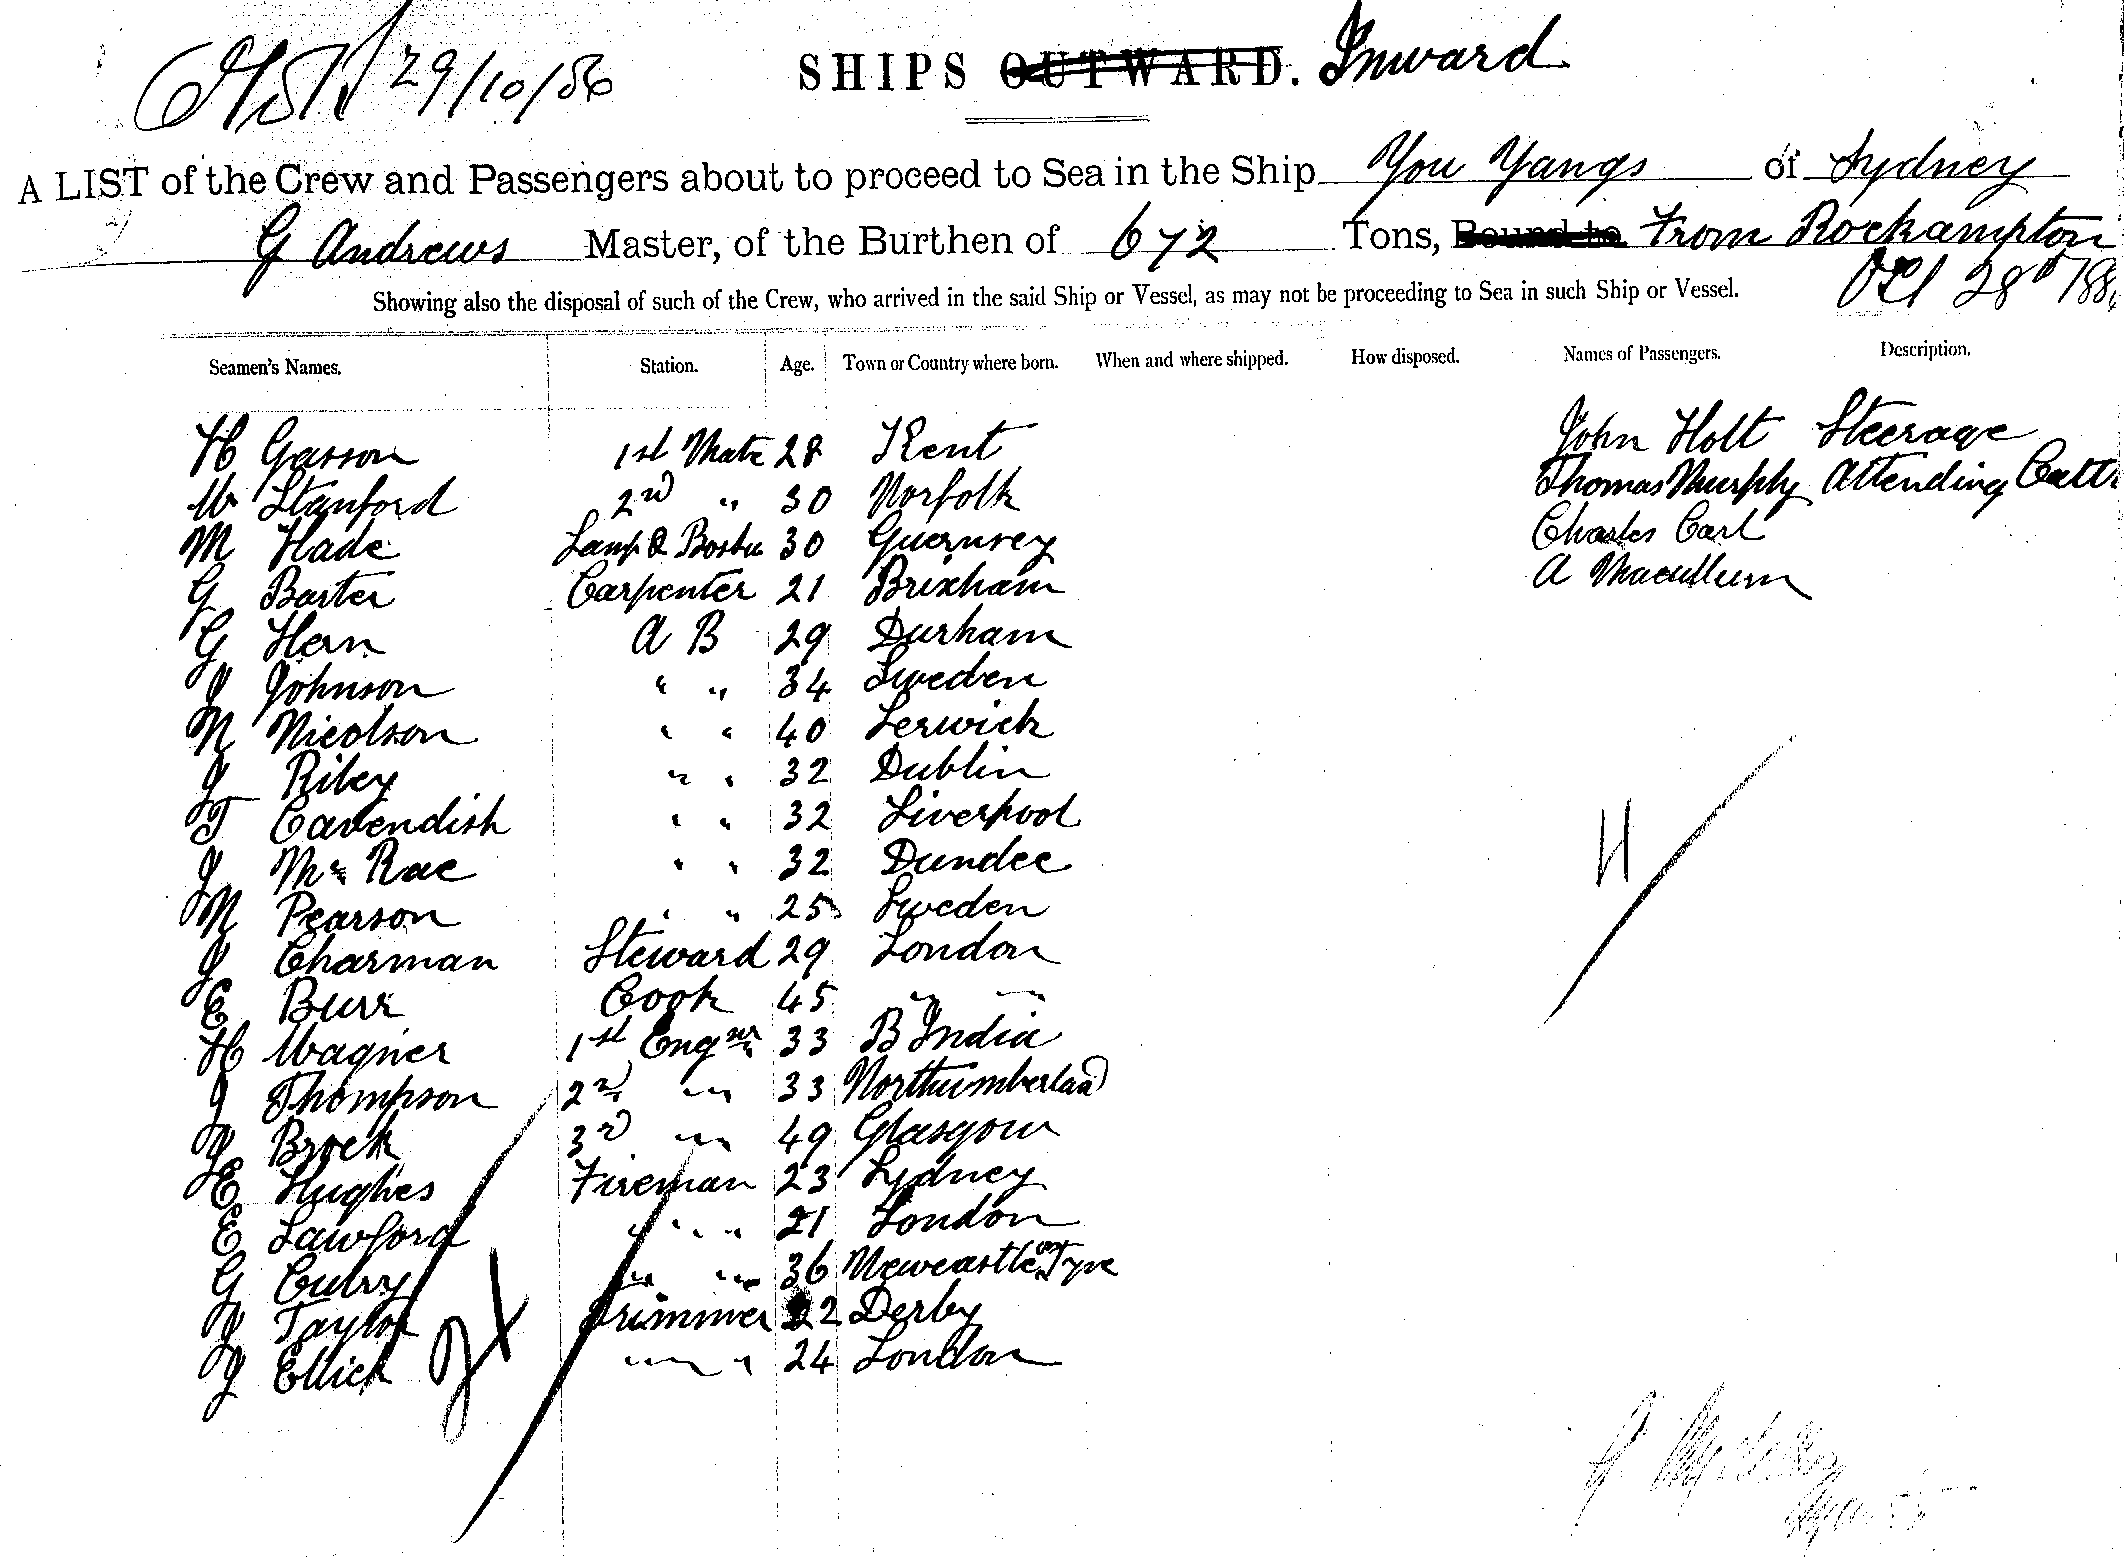 29/10/86
SHIPS OUTWARD. Inward
A LIST of the Crew and Passengers about to proceed to Sea in the Ship You Yangs of Sydney
G Andrews Master, of the Burthen of 672 Tons, Bound to From Rockhampton
Oct 28th 188
Showing also the disposal of such of the Crew, who arrived in the said Ship or Vessel, as may not be proceeding to Sea in such Ship or Vessel.
Seamen's Names. Station. Age. Town or Country where born. When and where shipped. How disposed. Names of Passengers. Description.
H Gasson 1st Mate 28 Kent John Holt Steerage
W Stanford 2nd " 30 Norfolk Thomas Murphy Attending Cattle
M Hade Lamp & 30 Guernsey Charles Carl
G Barter Carpenter 21 Brixham A Macullum
G Hern A B 29 Durham
J Johnson " " 34 Sweden
N Nicolson " " 40 Lerwick
J Riley " " 32 Dublin
T Cavendish " " 32 Liverpool
J McRae " " 32 Dundee
N Pearson " " 25 Sweden
J Charman Steward 29 London
E Burr Cook 45 " "
H Wagner 1st Engnr 33 B India
J Thompson 2nd " 33 Northumberland
J Brock 3rd " 49 Glasgow
E Hughes Fireman 23 Sydney
E Lawford " " 21 London
G Curry " " 36 Newcastle on Tyne
J Taylor Trimmer 22 Derby
J Ellick " " 24 London
21
4